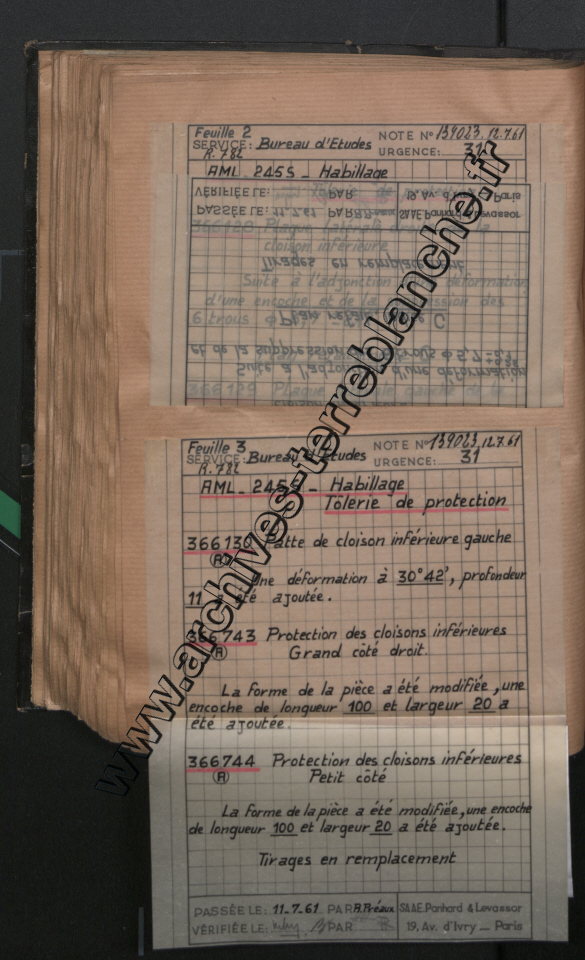 Feuille 2
SERVICE: Bureau d'Etudes NOTE N° 139023. 12.7.61
R. 782 URGENCE: 31
AML _ 245S _ Habillage
VÉRIFIÉE LE: PAR 19, Av. d'Ivry _ Paris
PASSÉE LE: 11.7.61 PAR R.Préaux S.A.A.E. Panhard & Levassor
366128 Plaque latérale
cloison inférieure
Tirages en remplacement
Suite à l'adjonction déformation
d'une encoche et de la suppression des
6 trous
et de la suppression trous ø 5,7
Suite à l'adjonction d'une déformation
366129 Plaque gauche de la
Feuille 3
SERVICE: Bureau d'Etudes NOTE N° 139023. 12.7.61
R. 782 URGENCE: 31
AML _ 245S _ Habillage
Tôlerie de protection
366130 Patte de cloison inférieure gauche
(R)
Une déformation à 30°42', profondeur
11 a été ajoutée.
366743 Protection des cloisons inférieures
(R) Grand côté droit.
La forme de la pièce a été modifiée, une
encoche de longueur 100 et largeur 20 a
été ajoutée.
366744 Protection des cloisons inférieures
(R) Petit côté
La forme de la pièce a été modifiée, une encoche
de longueur 100 et largeur 20 a été ajoutée.
Tirages en remplacement
PASSÉE LE: 11.7.61 PAR R.Préaux S.A.A.E. Panhard & Levassor
VÉRIFIÉE LE: PAR 19, Av. d'Ivry _ Paris
www.archives-terreblanche.fr